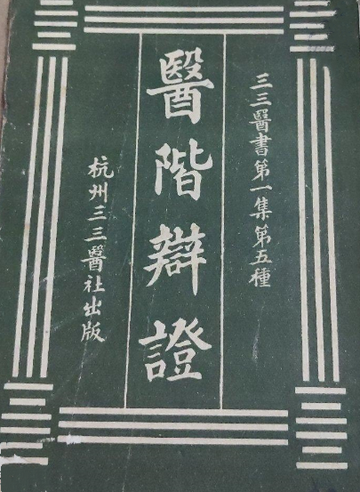 三三醫書第一集第五種
醫階辯證
杭州三三醫社出版